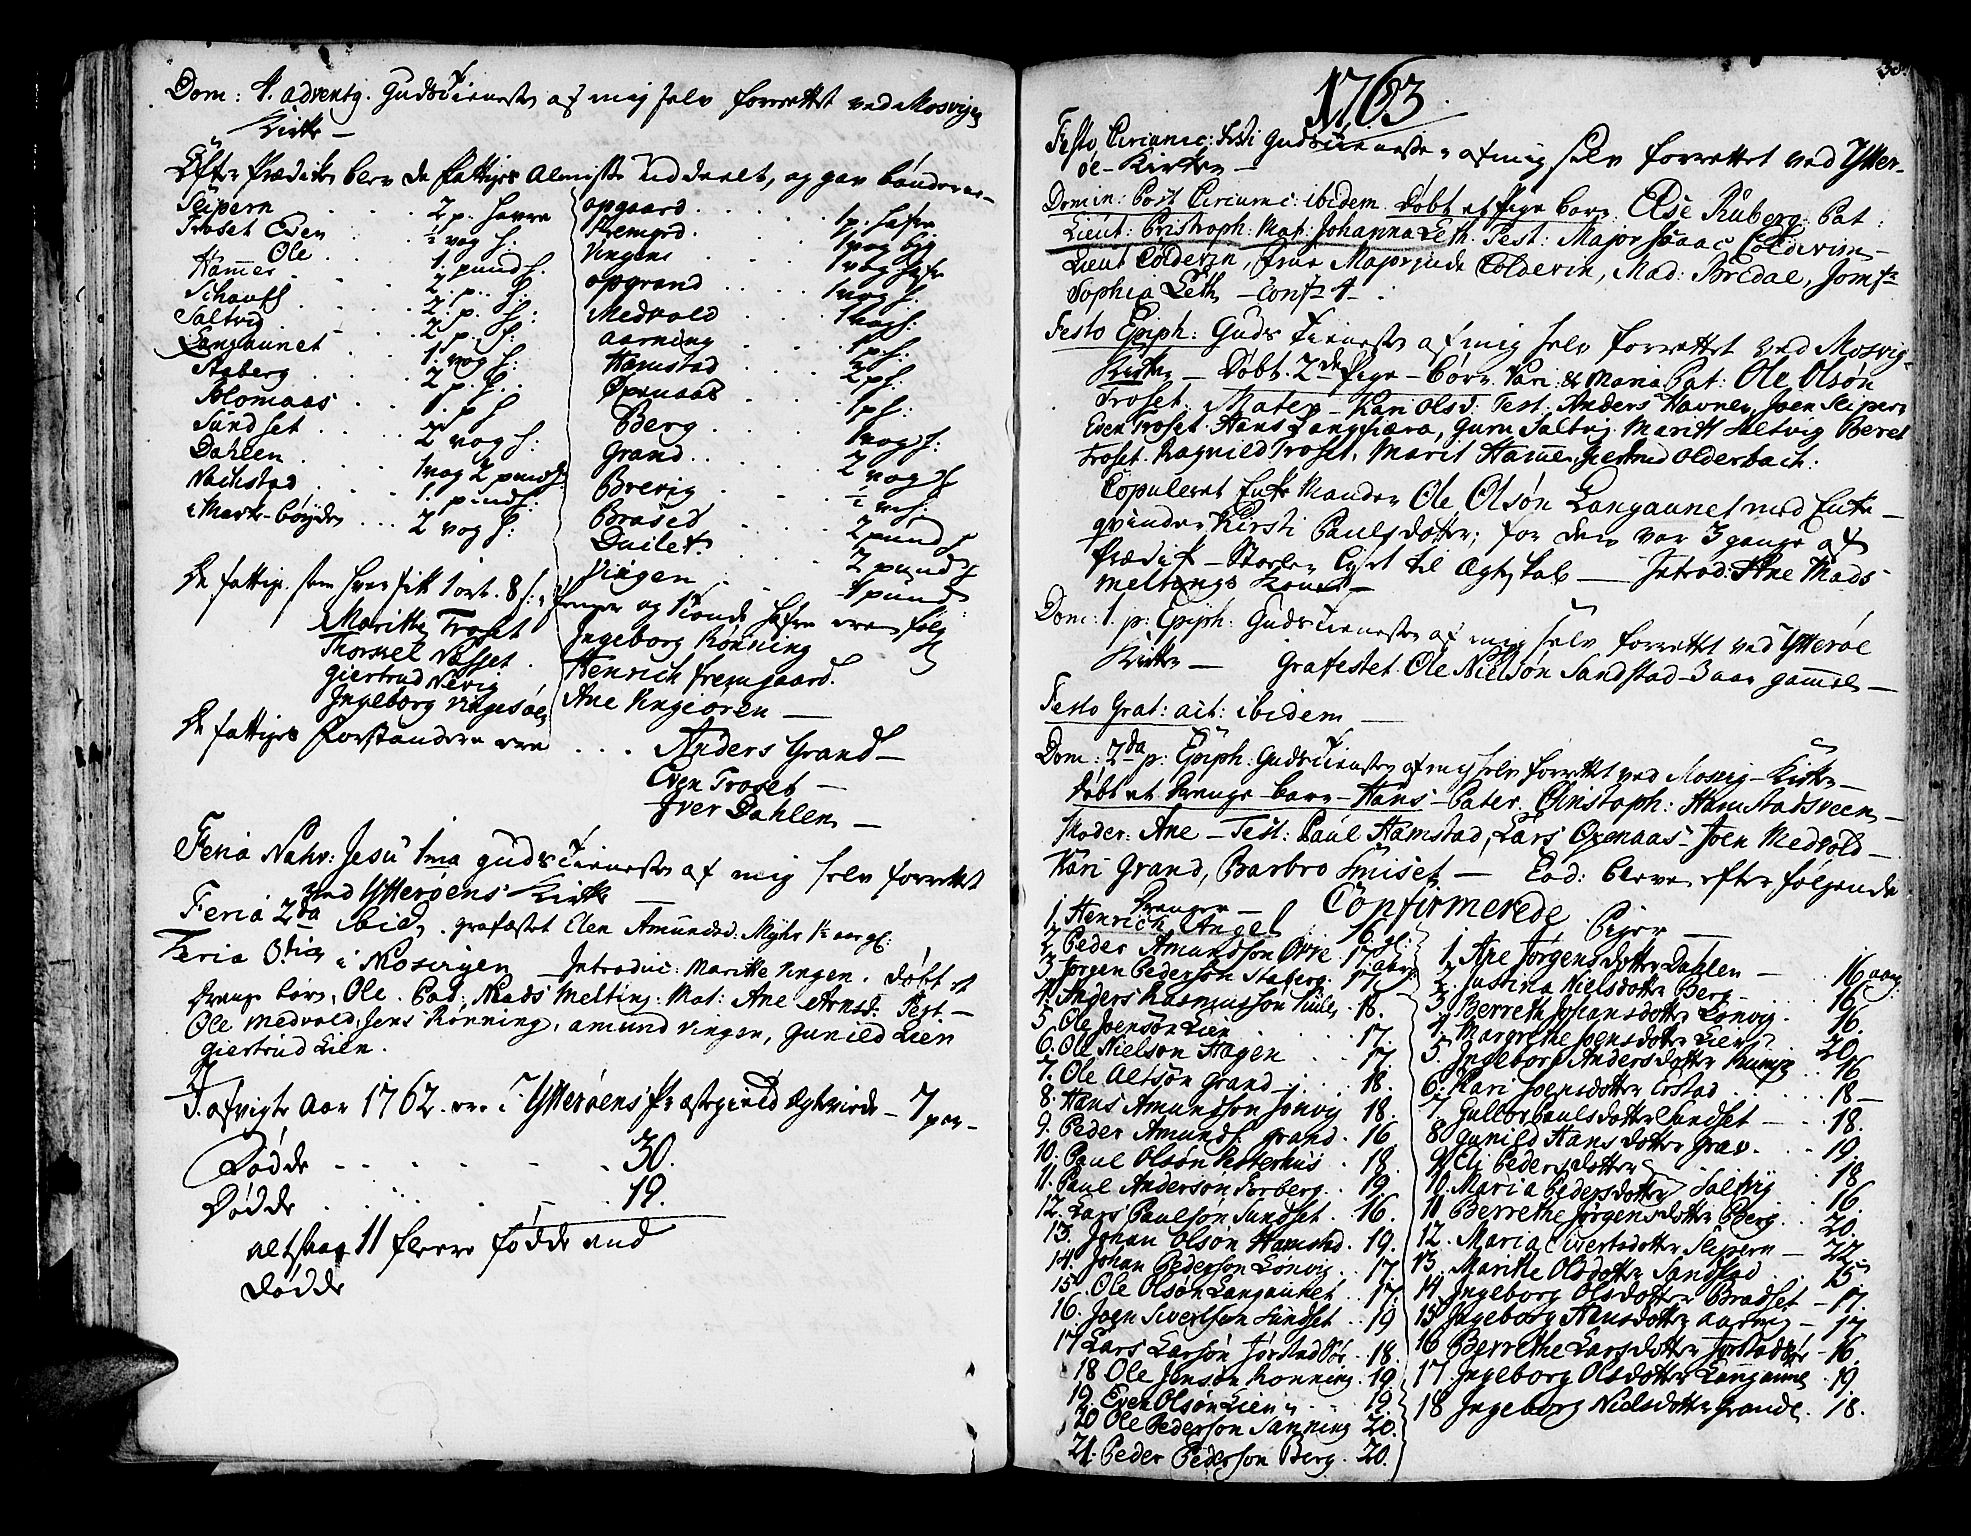 Dom: 4. adventg. Gudstienesten af mig selv forrettet ved Mosvigen
Kirke —
Efter Prædiken blev de fattiges Almisse uddeelt, og gav bønderne —
Slipern . . . 2 p: havre
Troset Even . . ½ vog h:
Ole . . 1. pund h.
Hammer . . 2 p. h:
Schauff . . 2. p. h:
Saltvig . . 2 p. h:
Langaunet . . 1. vog h:
Staberg . . 2 p. h.
Blomaas . . 1. p h
Sundset . . 2 vog h:
Dahlen . . 1 vog 2 pund h:
Nachstad . . 1. pund h:
i Mark-bøyden . . 2 vog h:
opgaard . . 1 p: hafre
Fremgrd . . 1 vog byg
Vingeni . . 1 vog hafr
opgrand . . 1 vog h.
Medvold . . 1 vog h:
aarning . . 1 p h:
Hamstad . . 2 p h:
Oxenaas . . 1 p h:
Berg . . 1 vog h:
Grand . . 2 vog h
Brevig . . ½ v h:
Braset . . 2 pund h
Duilet . . 2 pund h
Vingen . . 1 pund h
De fattige som hver fik 1 ort. 8 s: penger og 1 Konde hafre ere følg
Maritte Troset
Thorkel Nesset
Giertrud Nevig
Ingeborg Vingesøen
Ingeborg Rønning
Henrich fremgaard.
Ane Vingeören —
De fattiges Forstandere ere . . . Anders Grand —
Even Troset —
Iver Dahlen —
Feria Nativ: Jesu 1ma gudstienesten af mig selv forrettet
ved Ytterøens Kirke —
Feria 2da ibid. grafæstet Elen Amundsd: Myhr 1½ aar gl:
Feria 3tia i Mosvigen — Introduc: Maritte Vingen. Døbt et
Drenge barn, Ole. Pat: Mads Melting: Mat: Ane Arnsd: Test. —
Ole Medvold, Jens Rønning, amund Vingen, Gunild Lien
Giertrud Lien.
I afvigte Aar 1762. ere i Ytterøens Præstegield Egteviede — 7 par —
Fødde . . . 30.
Dødde . . . 19.
altsaa 11 fleere fødde end
Dødde
1763
Festo Circumc: Xsti Gudstienesten af mig selv forrettet ved Ytter-
öe-Kirken —
Domin: Post Circumc: ibidem. Døbt et Pige barn Else Ruberg: Pat:
Lieut: Christoph: Mat: Johanna Leth. Test: Major Isaac Coldevin —
Lieut Coldevin, frue Majorinde Coldevin, Mad: Bredal, Jomfr
Sophia Leth — Conf: 4 —
Festo Epiph: Guds tienesten af mig selv forrettet ved Mosvig-
Kirke — Døbt. 2de Pige-børn Kari & Maria Pat: Ole Olsøn
Troset. Mater — Kari Olsd: Test. Anders Havnen, Joen Slipern
Even Troset. Hans Langtiæra, Guru Saltvig Maritt Saltvig Beret
Troset. Ragnild Troset, Marit Hamer, Giertrud Olderbach:
Copuleret Enke Manden Ole Olsøn Langaunet med Enke —
qvinden Kirsti Paulsdotter; for dem var 3 gange af
Prædike-Stolen lyst til Egteskab — Introd: Ane Mads
Meltings Kone —
Dom: 1. p: Epiph: Gudstienesten af mig selv forrettet ved Ytterøe
Kirke — Grafestet Ole Nielsøn Sandstad 3 aar gammel —
Festo Grat: act: ibidem —
Dom: 2da p: Epiph: Gudstienesten af mig selv forrettet ved Mosvig-Kirke —
Døbt et Drenge barn — Hans — Pater Christoph: Hamstadsveen —
Moder: Ane — Test: Paul Hamstad, Lars Oxenaas — Joen Medvold —
Kari Grand, Barbro Smiset — Eod: bleve efter følgende
Confirmerede
Drenge —
1. Henrich Angel . 16. gl:
2. Peder Amundson Øvre 17 aar
3. Jorgen Pederson Staberg. 17.
4. Anders Rasmusson . 18.
5. Ole Joensøn Lien . . 17.
6. Ole Nielson Hagen . 17.
7. Ole Altsøn Grand . . 18.
8. Hans Amundson Jonvig 18.
9. Peder Amunds: Grand . 16
10. Paul Olsøn Vesterhus . 18.
11. Paul Anderson Forberg . 19
12. Lars Paulson Sundset . 16.
13. Johan Olson Hamstad . 19.
14. Johan Pederson Lonvig . 17
15. Ole Olsøn Langaunet . 17.
16. Joen Sivertson Sundset . 19
17 Lars Larson Jørstad 18.
18 Ole Jensøn Ronning . 19
19. Even Olsøn Lien . . 19.
20 Ole Pederson Sanning 20.
21. Peder Pederson Berg. 20.
Piger —
1. Ane Jørgensdotter Dahlen — . 16 aar
2. Justina Nielsdotter Berg — . 16.
3. Berrethe Johansdotter Lonvig . 16.
4. Margrethe Joensdotter Lien . 20.
5. Ingeborg Andersdotter . 16
6. Kari Joensdotter Lostad . . 18 —
7. Gullov Paulsdotter Sundset — . 18.
8. Gunild Hansdotter Grav . . 19.
9. Eli Pedersdotter
10. Maria Pedersdotter Saltvig . 18
11 Berrethe Jørgensdotter Berg . . 16.
12. Maria Sivertsdotter Slipern — 20.
13. Maritte Olsdotter Sandstad . 22.
14 Ingeborg Olsdotter Bradset — 15.
15 Ingeborg Hansdotter aarnig — 17.
16 Berrethe Larsdotter Jørstad 16.
17. Ingeborg Olsdotter Langaunet . 19
18 Ingeborg Nielsdotter Grande . 18.